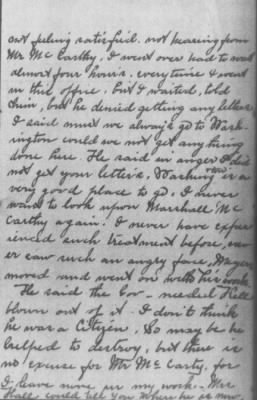 not feeling satisfied. not hearing from
Mr Mc Carthy. I went over had to wait
almost four hours. everytime I went
in this office. but I waited, told
him, but he denied getting any letters
I said must we always go to Wash-
ington could we not get anything
done here. He said in anger I did
not get your letters, Washington is a
very good place to go. I never
want to look upon Marshall Mc
Carthy again. I never have exper
ienced such treatment before, nev
er saw such an angry face,
moved and went on with his work
He said the Gov - needed Hell
blown out of it. I don't think
he was a Citizen. So may be he
helped to destroy, but there is
no excuse for Mr Mc Carty. for
I leave none in my work. Mrs
Hall could tell you where he is now.